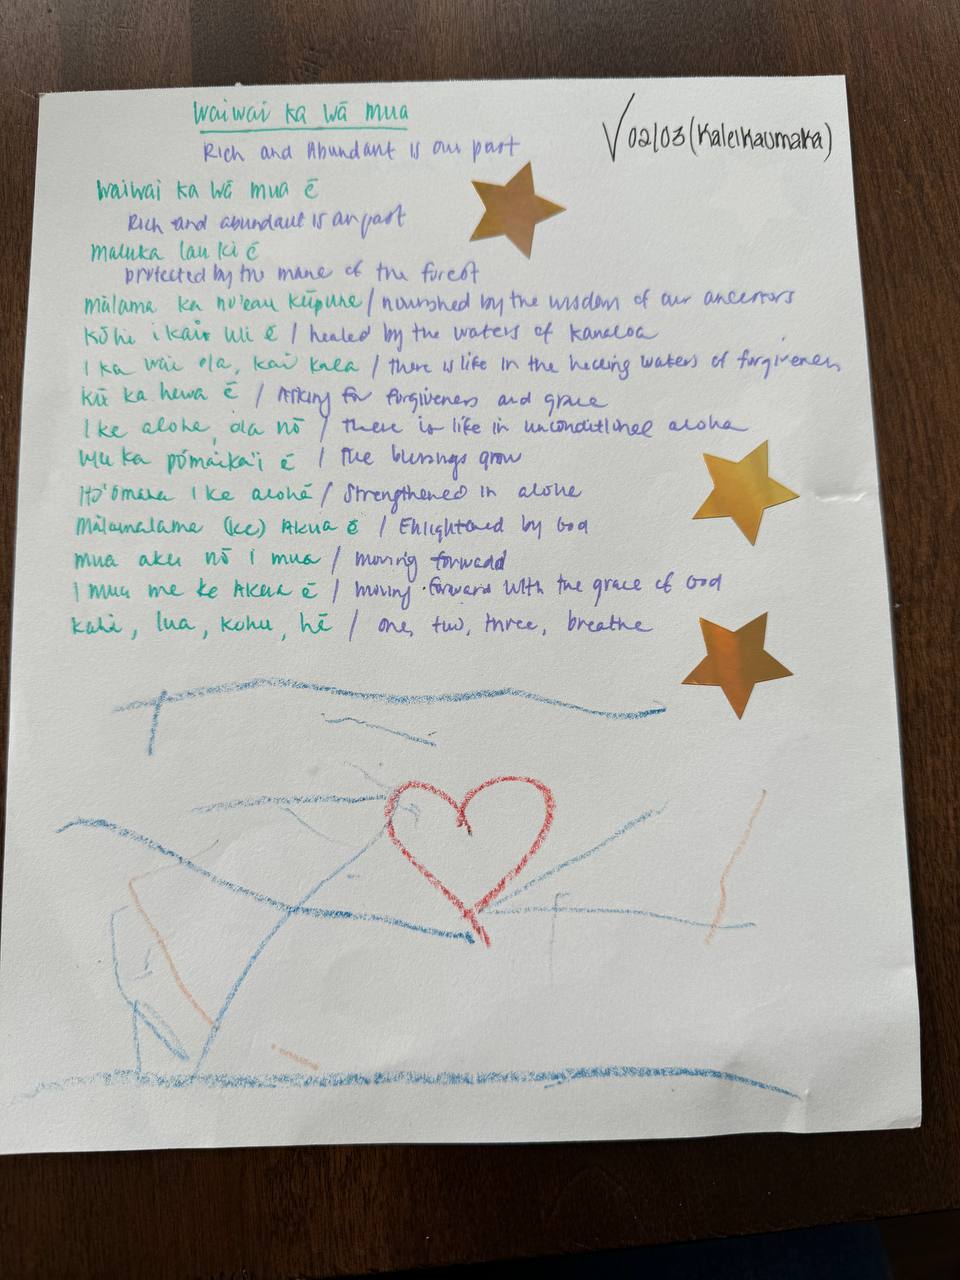 Waiwai ka wā mua
√ 02/03 (Kaleikaumaka)
Rich and Abundant is our past
Waiwai ka wā mua ē
Rich and abundant is our past
Maluka lau ki ē
protected by the mane of the forest
Mālama ka no'eau kūpuna / nourished by the wisdom of our ancestors
i kai uli ē / healed by the waters of Kanaloa
I ka wai ola, kai kala / there is life in the healing waters of forgiveness
Kū ka hewa ē / Asking for forgiveness and grace
I ke aloha, ola nō / there is life in unconditional aloha
Ulu ka pōmaika'i ē / The blessings grow
Ho'omana I ke aloha / Strengthened in aloha
Mālamalama (ke) Akua ē / Enlightened by God
mua aku nō i mua / moving forward
I mua me ke Akua ē / moving forward with the grace of God
Kahi, lua, kolu, hā / one, two, three, breathe